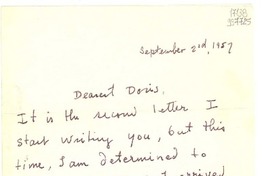 September 2nd, 1957
Dearest Doris,
It is the second letter I
start writing you, but this
time, I am determined to
I arrived